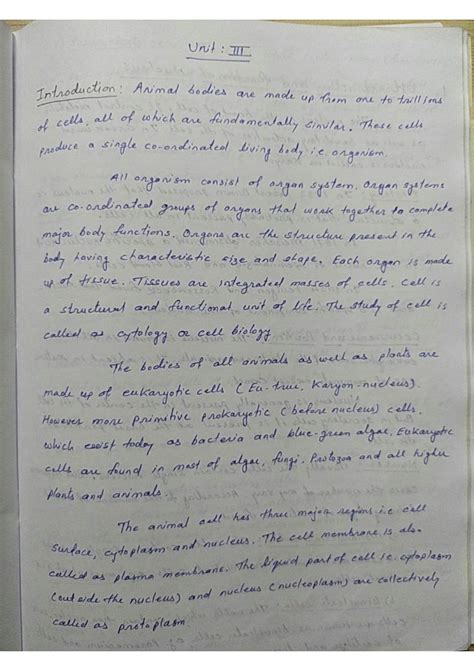 Unit : III
Introduction : Animal bodies are made up from one to trillions
of cells, all of which are fundamentally similar. These cells
produce a single co-ordinated living body i.e. organism.
All organism consist of organ system. Organ systems
are co-ordinated groups of organs that work together to complete
major body functions. Organs are the structure present in the
body having characteristic size and shape. Each organ is made
up of tissue. Tissues are integrated masses of cells. Cell is
a structural and functional unit of life. The study of cell is
called as cytology or cell biology
The bodies of all animals as well as plants are
made up of eukaryotic cells (Eu-true, Karyon-nucleus).
However more primitive prokaryotic (before nucleus) cells.
which exist today as bacteria and blue-green algae. Eukaryotic
cells are found in most of algae, fungi, Protozoa and all higher
plants and animals.
The animal cell has three major regions i.e cell
surface, cytoplasm and nucleus. The cell membrane is also
called as plasma membrane. The liquid part of cell i.e. cytoplasm
(outside the nucleus) and nucleus (nucleoplasm) are collectively
called as protoplasm